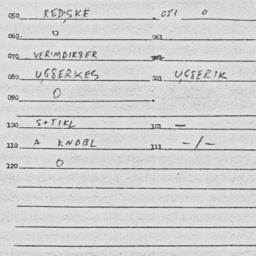 050. REDISKE 051 0
060. 0 061
070. VERIMDIKBER
080. UGBERKES 081 UGBERIK
090. 0
100. S+TIKL 101 —
110. A KNOBL 111 -/-
120. 0